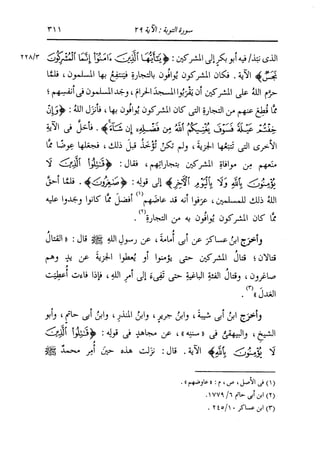 سورة التوبة : الآية ٢٩
٣١١
الذى نبَذ فيه أبو بكر إلى المشركين : ﴿يَٰٓأَيُّهَا ٱلَّذِينَ ءَامَنُوٓا۟ إِنَّمَا ٱلْمُشْرِكُونَ
٢٢٨/٣
نَجَسٌ﴾ الآية . فكان المشركون يُوافون بالتجارة فيَنتَفِعُ بها المسلمون ، فلمَّا
حرَّم اللهُ على المشركين أن يَقْرَبوا المسجدَ الحرامَ ، وجَد المسلمون فى أنفسِهم ؛
مما قُطِع عنهم من التجارةِ التى كان المشركون يُوافون بها ، فأنزل اللهُ : ﴿وَإِنْ
خِفْتُمْ عَيْلَةً فَسَوْفَ يُغْنِيكُمُ ٱللَّهُ مِن فَضْلِهِۦٓ إِن شَآءَ﴾ . فأحَلَّ فى الآيةِ
الأخرى التى تَتْبَعُها الجزيةَ ، ولم تكنْ تُؤْخَذُ قبلَ ذلك ، فجعَلها عِوَضًا ممَّا
منَعهم من موافاةِ المشركين بتجاراتِهم ، فقال : ﴿قَٰتِلُوا۟ ٱلَّذِينَ لَا
يُؤْمِنُونَ بِٱللَّهِ وَلَا بِٱلْيَوْمِ ٱلْءَاخِرِ﴾ إلى قولِه : ﴿صَٰغِرُونَ﴾ . فلمَّا أحَقَّ
اللهُ ذلك للمسلمين ، عرَفوا أنه قد عاضَهم(١) أفضلَ ممَّا كانوا وجَدوا عليه
ممَّا كان المشركون يُوافون به من التجارةِ(٢) .
وأخرَج ابنُ عساكرَ عن أبى أُمامةَ ، عن رسولِ اللهِ ﷺ قال : « القتالُ
قتالان ؛ قتالُ المشركين حتى يؤمنوا أو يُعطوا الجزيةَ عن يدٍ وهم
صاغرون ، وقتالُ الفئةِ الباغيةِ حتى تَفِىءَ إلى أمرِ اللهِ ، فإذا فاءت أُعطِيَت
العَدْلَ »(٣) .
وأخرَج ابنُ أبى شيبةَ ، وابنُ جريرٍ ، وابنُ المنذرِ ، وابنُ أبى حاتمٍ ، وأبو
الشيخِ ، والبيهقىُّ فى « سننِه » ، عن مجاهدٍ فى قولِه : ﴿قَٰتِلُوا۟ ٱلَّذِينَ
لَا يُؤْمِنُونَ بِٱللَّهِ﴾ الآية . قال : نزَلت هذه حينَ أُمِر محمدٌ ﷺ
(١) فى الأصل ، ص ، م : « عاوضهم » .
(٢) ابن أبى حاتم ٦/ ١٧٧٩ .
(٣) ابن عساكر ١٠/ ٢٤٥ .